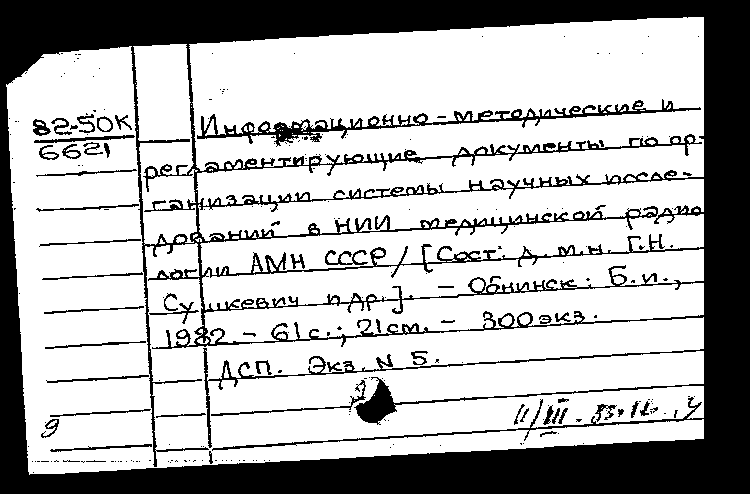 82-50К
6621
Информационно-методические и
регламентирующие документы по ор-
ганизации системы научных иссле-
дований в НИИ медицинской радио
логии АМН СССР / [Сост: д.м.н. Г.Н.
Сушкевич и др.]. - Обнинск: Б.и.,
1982. - 61с.; 21см. - 300экз.
ДСП. Экз. N 5.
9